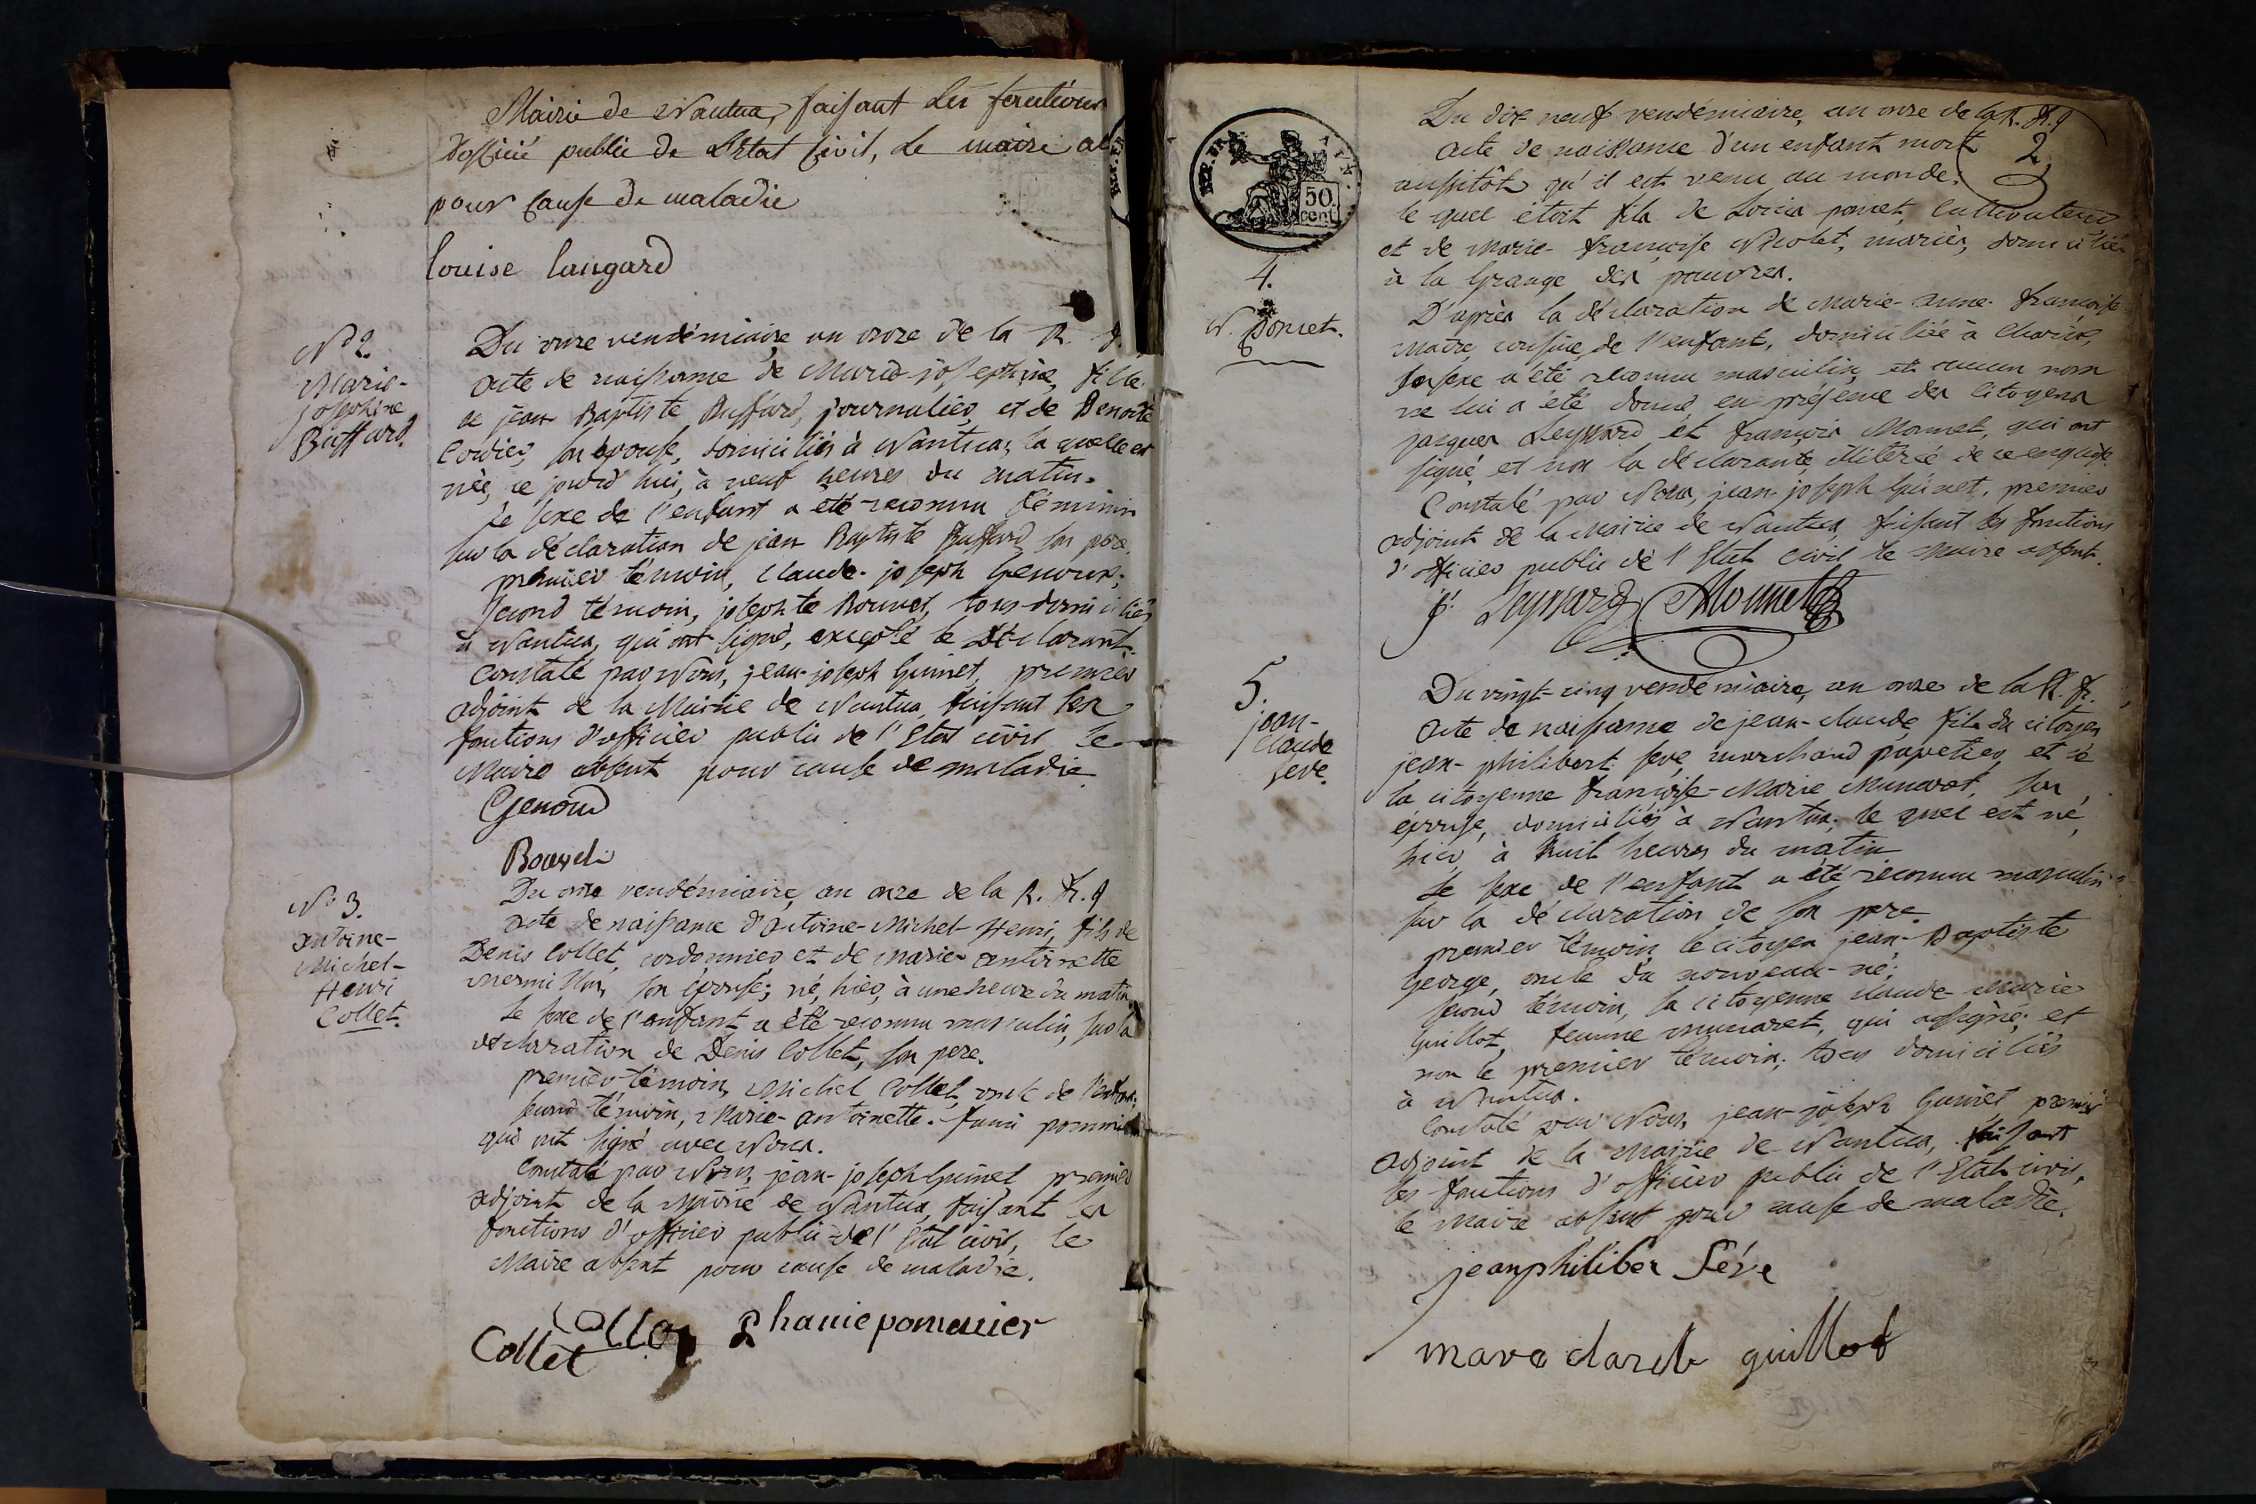 Mairie de Nantua, faisant les fonctions
d'officié public de L'Etat Civil, Le maire a
pour Cause de maladie
louise laugard
Nº 2.
Marie-
josephine
Buffard.
Du onze vendémiaire, an onze de la R. f.
acte de naissance de Marie-josephine, fille
de jean Baptiste Buffard, journalier, et de Benoite
Cordier, son épouse, domiciliés à Nantua; la quelle est
née, ce jourd'hui, à neuf heures du matin.
Le sexe de l'enfant a été reconnu féminin
sur la déclaration de jean Baptiste Buffard son père.
premier témoin, Claude-joseph Genoux;
second témoin, josephte Bouvet, tous domiciliés
à Nantua, qui ont signé, excepté le Déclarant.
Constaté par Nous, jean-joseph Guinet, premier
adjoint de la Mairie de Nantua, faisant les
fonctions d'officier public de l'Etat civil le
Maire absent pour cause de maladie.
Genoud
Bouvet
Nº 3.
antoine-
Michel-
Henri
Collet.
Du onze vendémiaire, an onze de la R. fr.
acte de naissance d'antoine-Michel-Henri, fils de
Denis Collet, cordonnier, et de Marie-antoinette
mermillon, son épouse; né, hier, à une heure du matin.
Le sexe de l'enfant a été reconnu masculin, sur la
déclaration de Denis Collet, son père.
premier témoin, Michel Collet, oncle de l'enfant;
second témoin, Marie-antoinette
qui ont signé avec Nous.
Constaté par Nous, jean-joseph Guinet premier
adjoint de la Mairie de Nantua, faisant les
fonctions d'officier public de l'Etat civil, le
Maire absent pour cause de maladie.
Collet
Collet phanie pommier
REP. FRA.
50.
cent.
2
4.
N. Poncet.
Du dix neuf vendémiaire, an onze de la R. fr.
acte de naissance d'un enfant mort
aussitôt qu'il est venu au monde;
le quel étoit fils de Louis poncet, Cultivateur
et de Marie-françoise Nicolet, mariés, domiciliés
à la Grange des pauvres.
D'après la déclaration de Marie-anne françoise
maire, cousine de l'enfant, domiciliée à Charix,
son sexe a été reconnu masculin, et aucun nom
ne lui a été donné, en présence des Citoyens
jacques Leyssard et françois Monnet, qui ont
signé, et non la déclarante, illitérée de ce enquise.
Constaté par Nous, jean-joseph Guinet, premier
adjoint de la Mairie de Nantua, faisant les fonctions
d'officier public de l'Etat civil le Maire absent.
j. Leyssard Monnet
5.
jean-
Claude
seve.
Du vingt-cinq vendémiaire, an onze de la R. fr.
acte de naissance de jean-claude, fils du citoyen
jean-philibert seve, marchand papetier, et de
la citoyenne françoise-Marie Munaret, son
épouse, domiciliés à Nantua; le quel est né,
hier, à huit heures du matin.
Le sexe de l'enfant a été reconnu masculin
sur la déclaration de son père.
premier témoin, le citoyen jean-Baptiste
George, oncle du nouveau-né;
second témoin, la citoyenne claude-Marie
Guillot, femme munaret, qui a signé; et
non le premier témoin; tous domiciliés
à Nantua.
Constaté par Nous, jean-joseph Guinet, premier
adjoint de la Mairie de Nantua, faisant
les fonctions d'officier public de l'Etat civil,
le maire absent pour cause de maladie.
jeanphiliber Séve
guillot